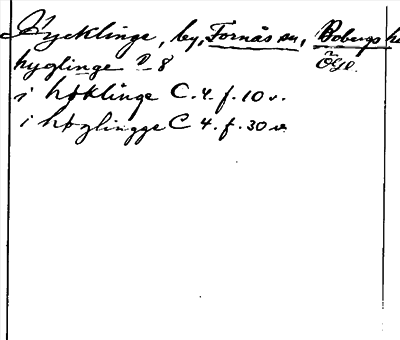 Hycklinge, by, Fornåsa sn, Bobergs hd
hyglinge D 8 ÖGl.
i høklinge C. 4. f. 10 v.
i høglingge C 4. f. 30 v.